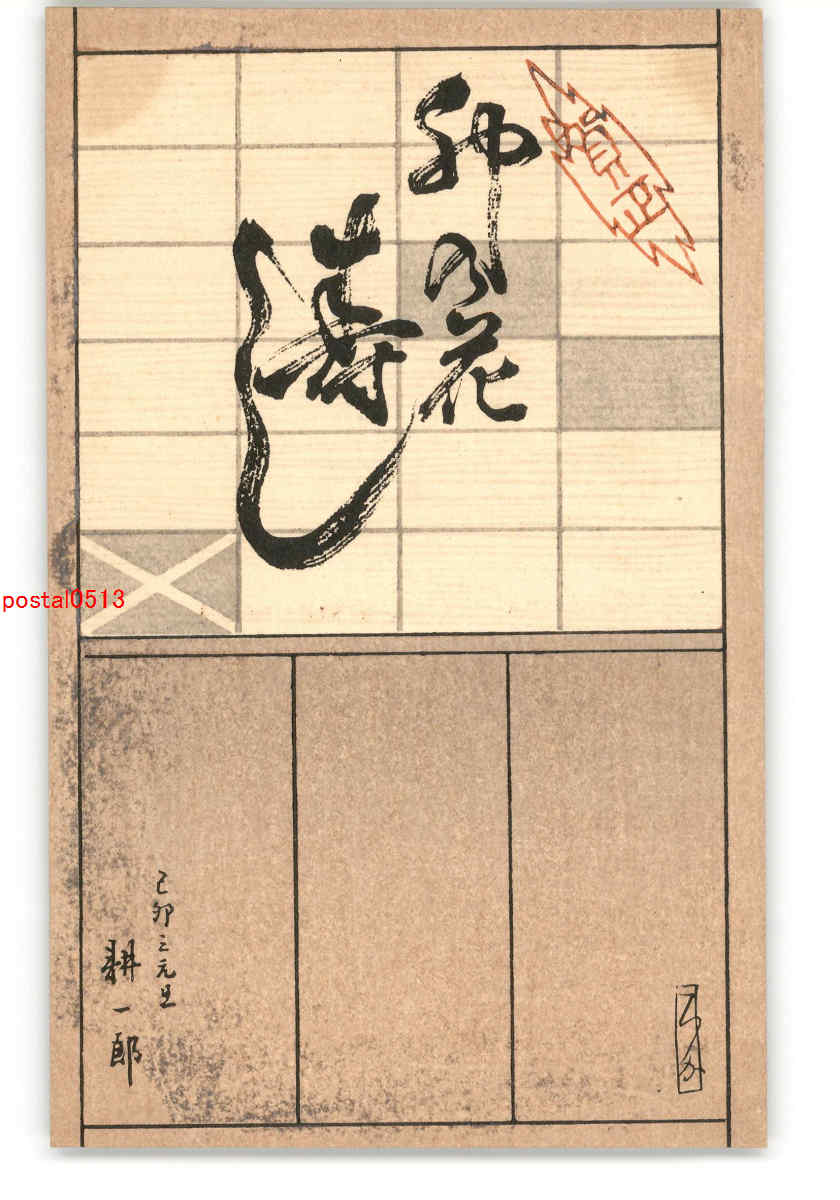 卯の花
濤し
己卯三元旦
耕一郎
postal0513